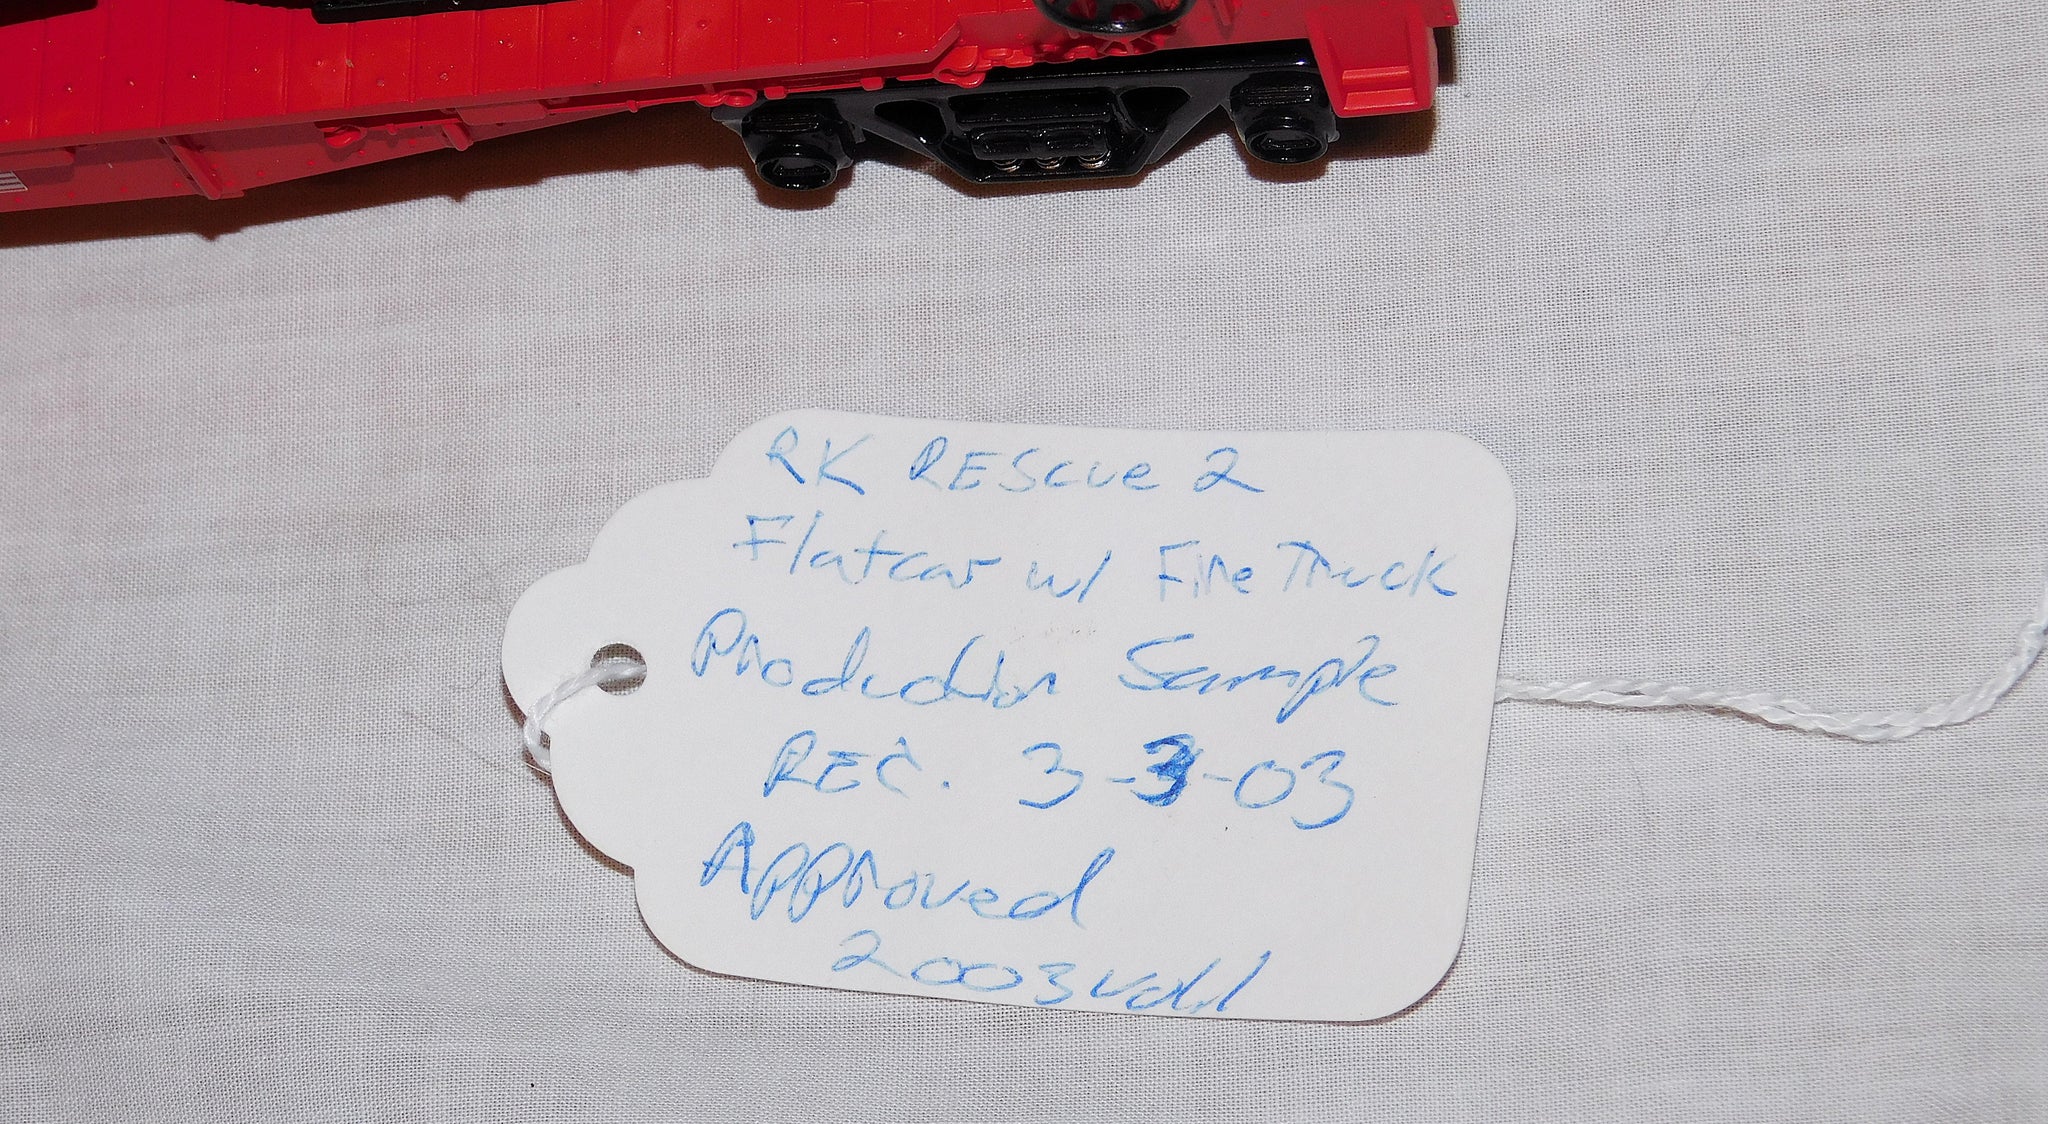 RK RESCUE 2
Flatcar w/ Fire Truck
Production Sample
REC. 3-3-03
Approved
2003 Vol 1